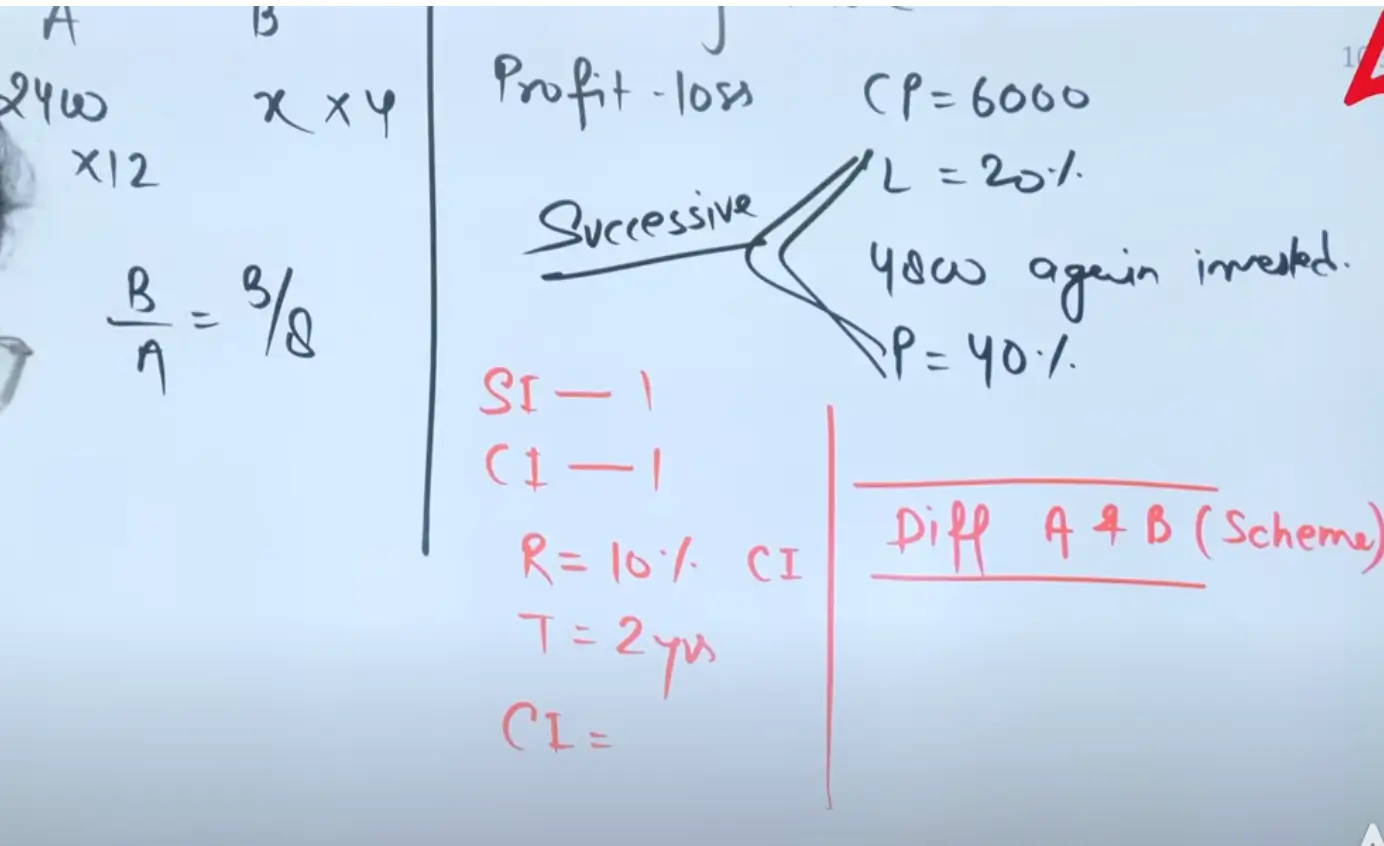 A B
2400 x × 4
×12
B/A = 3/8
Profit - loss CP = 6000
Successive L = 20%
4800 again invested.
P = 40%
SI — 1
CI — 1
R = 10% CI
T = 2 yrs
CI =
Diff A & B (Scheme)